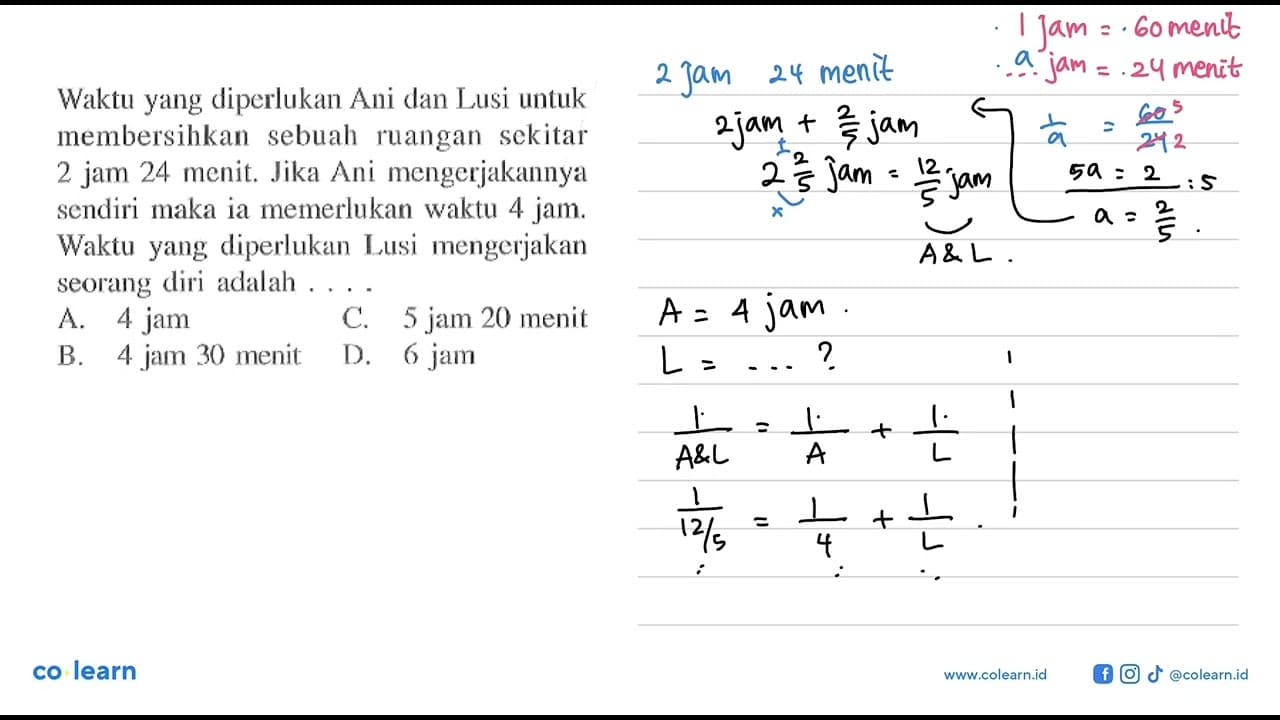 Waktu yang diperlukan Ani dan Lusi untuk
membersihkan sebuah ruangan sekitar
2 jam 24 menit. Jika Ani mengerjakannya
sendiri maka ia memerlukan waktu 4 jam.
Waktu yang diperlukan Lusi mengerjakan
seorang diri adalah . . . .
A. 4 jam C. 5 jam 20 menit
B. 4 jam 30 menit D. 6 jam
1 jam = 60 menit
a jam = 24 menit
...
2 jam 24 menit
2 jam + 2/5 jam
2 2/5 jam = 12/5 jam
+
x
A & L .
1/a = 60/24
5
2
5a = 2 :5
a = 2/5 .
A = 4 jam .
L = ... ?
1/A&L = 1/A + 1/L
1/12/5 = 1/4 + 1/L .
co learn
www.colearn.id @colearn.id